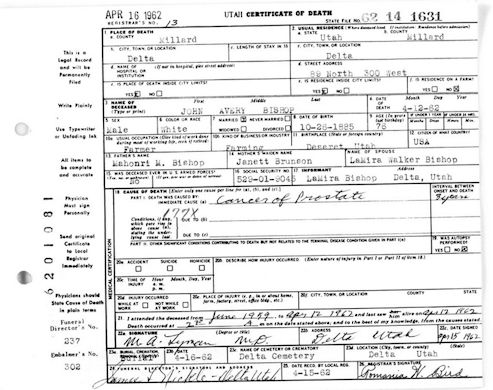 APR 16 1962 UTAH CERTIFICATE OF DEATH
REGISTRAR'S NO. 13 STATE FILE NO. 62 14 1631
1. PLACE OF DEATH 2. USUAL RESIDENCE
a. COUNTY Millard a. STATE Utah b. COUNTY Millard
b. CITY, TOWN, OR LOCATION c. LENGTH OF STAY IN 1b c. CITY, TOWN, OR LOCATION
Delta Delta
d. NAME OF HOSPITAL OR INSTITUTION (If not in hospital, give street address) d. STREET ADDRESS
89 North 300 West
e. IS PLACE OF DEATH INSIDE CITY LIMITS? e. IS RESIDENCE INSIDE CITY LIMITS? f. IS RESIDENCE ON A FARM?
YES NO YES NO YES NO
3. NAME OF DECEASED (Type or print) First Middle Last 4. DATE OF DEATH Month Day Year
JOHN AVERY BISHOP 4-12-62
5. SEX 6. COLOR OR RACE 7. MARRIED NEVER MARRIED 8. DATE OF BIRTH 9. AGE (In years last birthday) IF UNDER 1 YEAR IF UNDER 24 HRS.
Male White WIDOWED DIVORCED 10-28-1885 76
10a. USUAL OCCUPATION 10b. KIND OF BUSINESS OR INDUSTRY 11. BIRTHPLACE (State or foreign country) 12. CITIZEN OF WHAT COUNTRY?
Farmer Farming Deseret, Utah USA
13. FATHER'S NAME 14. MOTHER'S MAIDEN NAME NAME OF SPOUSE
Mahonri M. Bishop Janett Brunson LaMira Walker Bishop
15. WAS DECEASED EVER IN U. S. ARMED FORCES? 16. SOCIAL SECURITY NO. 17. INFORMANT Address
No 529-01-9045 LaMira Bishop Delta, Utah
18. CAUSE OF DEATH [Enter only one cause per line for (a), (b), and (c).] INTERVAL BETWEEN ONSET AND DEATH
PART I. DEATH WAS CAUSED BY:
IMMEDIATE CAUSE (a) Cancer of Prostate 3 years
177X
DUE TO (b)
DUE TO (c)
PART II. OTHER SIGNIFICANT CONDITIONS CONTRIBUTING TO DEATH BUT NOT RELATED TO THE TERMINAL DISEASE CONDITION GIVEN IN PART I(a) 19. WAS AUTOPSY PERFORMED?
YES NO
20a. ACCIDENT SUICIDE HOMICIDE 20b. DESCRIBE HOW INJURY OCCURRED. (Enter nature of injury in Part I or Part II of item 18.)
20c. TIME OF INJURY Hour Month, Day, Year
20d. INJURY OCCURRED 20e. PLACE OF INJURY 20f. CITY, TOWN, OR LOCATION COUNTY STATE
WHILE AT WORK NOT WHILE AT WORK
21. I attended the deceased from June 1959 to Apr 12 1962 and last saw him alive on Apr 12 1962
Death occurred at m. on the date stated above, and to the best of my knowledge, from the causes stated.
22a. SIGNATURE (Degree or title) 22b. ADDRESS 22c. DATE SIGNED
M. A. Lyman M.D. Delta Utah Apr 15 1962
23b. DATE 23c. NAME OF CEMETERY OR CREMATORY 23d. LOCATION (City, town, or county) (State)
Burial 4-16-62 Delta Cemetery Delta, Utah
24. FUNERAL DIRECTOR'S SIGNATURE ADDRESS 26. REGISTRAR'S SIGNATURE
4-15-62 Romania W. Bird
This is a Legal Record and will be Permanently Filed
Write Plainly
Use Typewriter or Unfading Ink
All items to be complete and accurate
Physician Must Sign Personally
Send original Certificate to Local Registrar Immediately
Physicians should State Cause of Death in plain terms
Funeral Director's No.
237
Embalmer's No.
302
6201081
MEDICAL CERTIFICATION